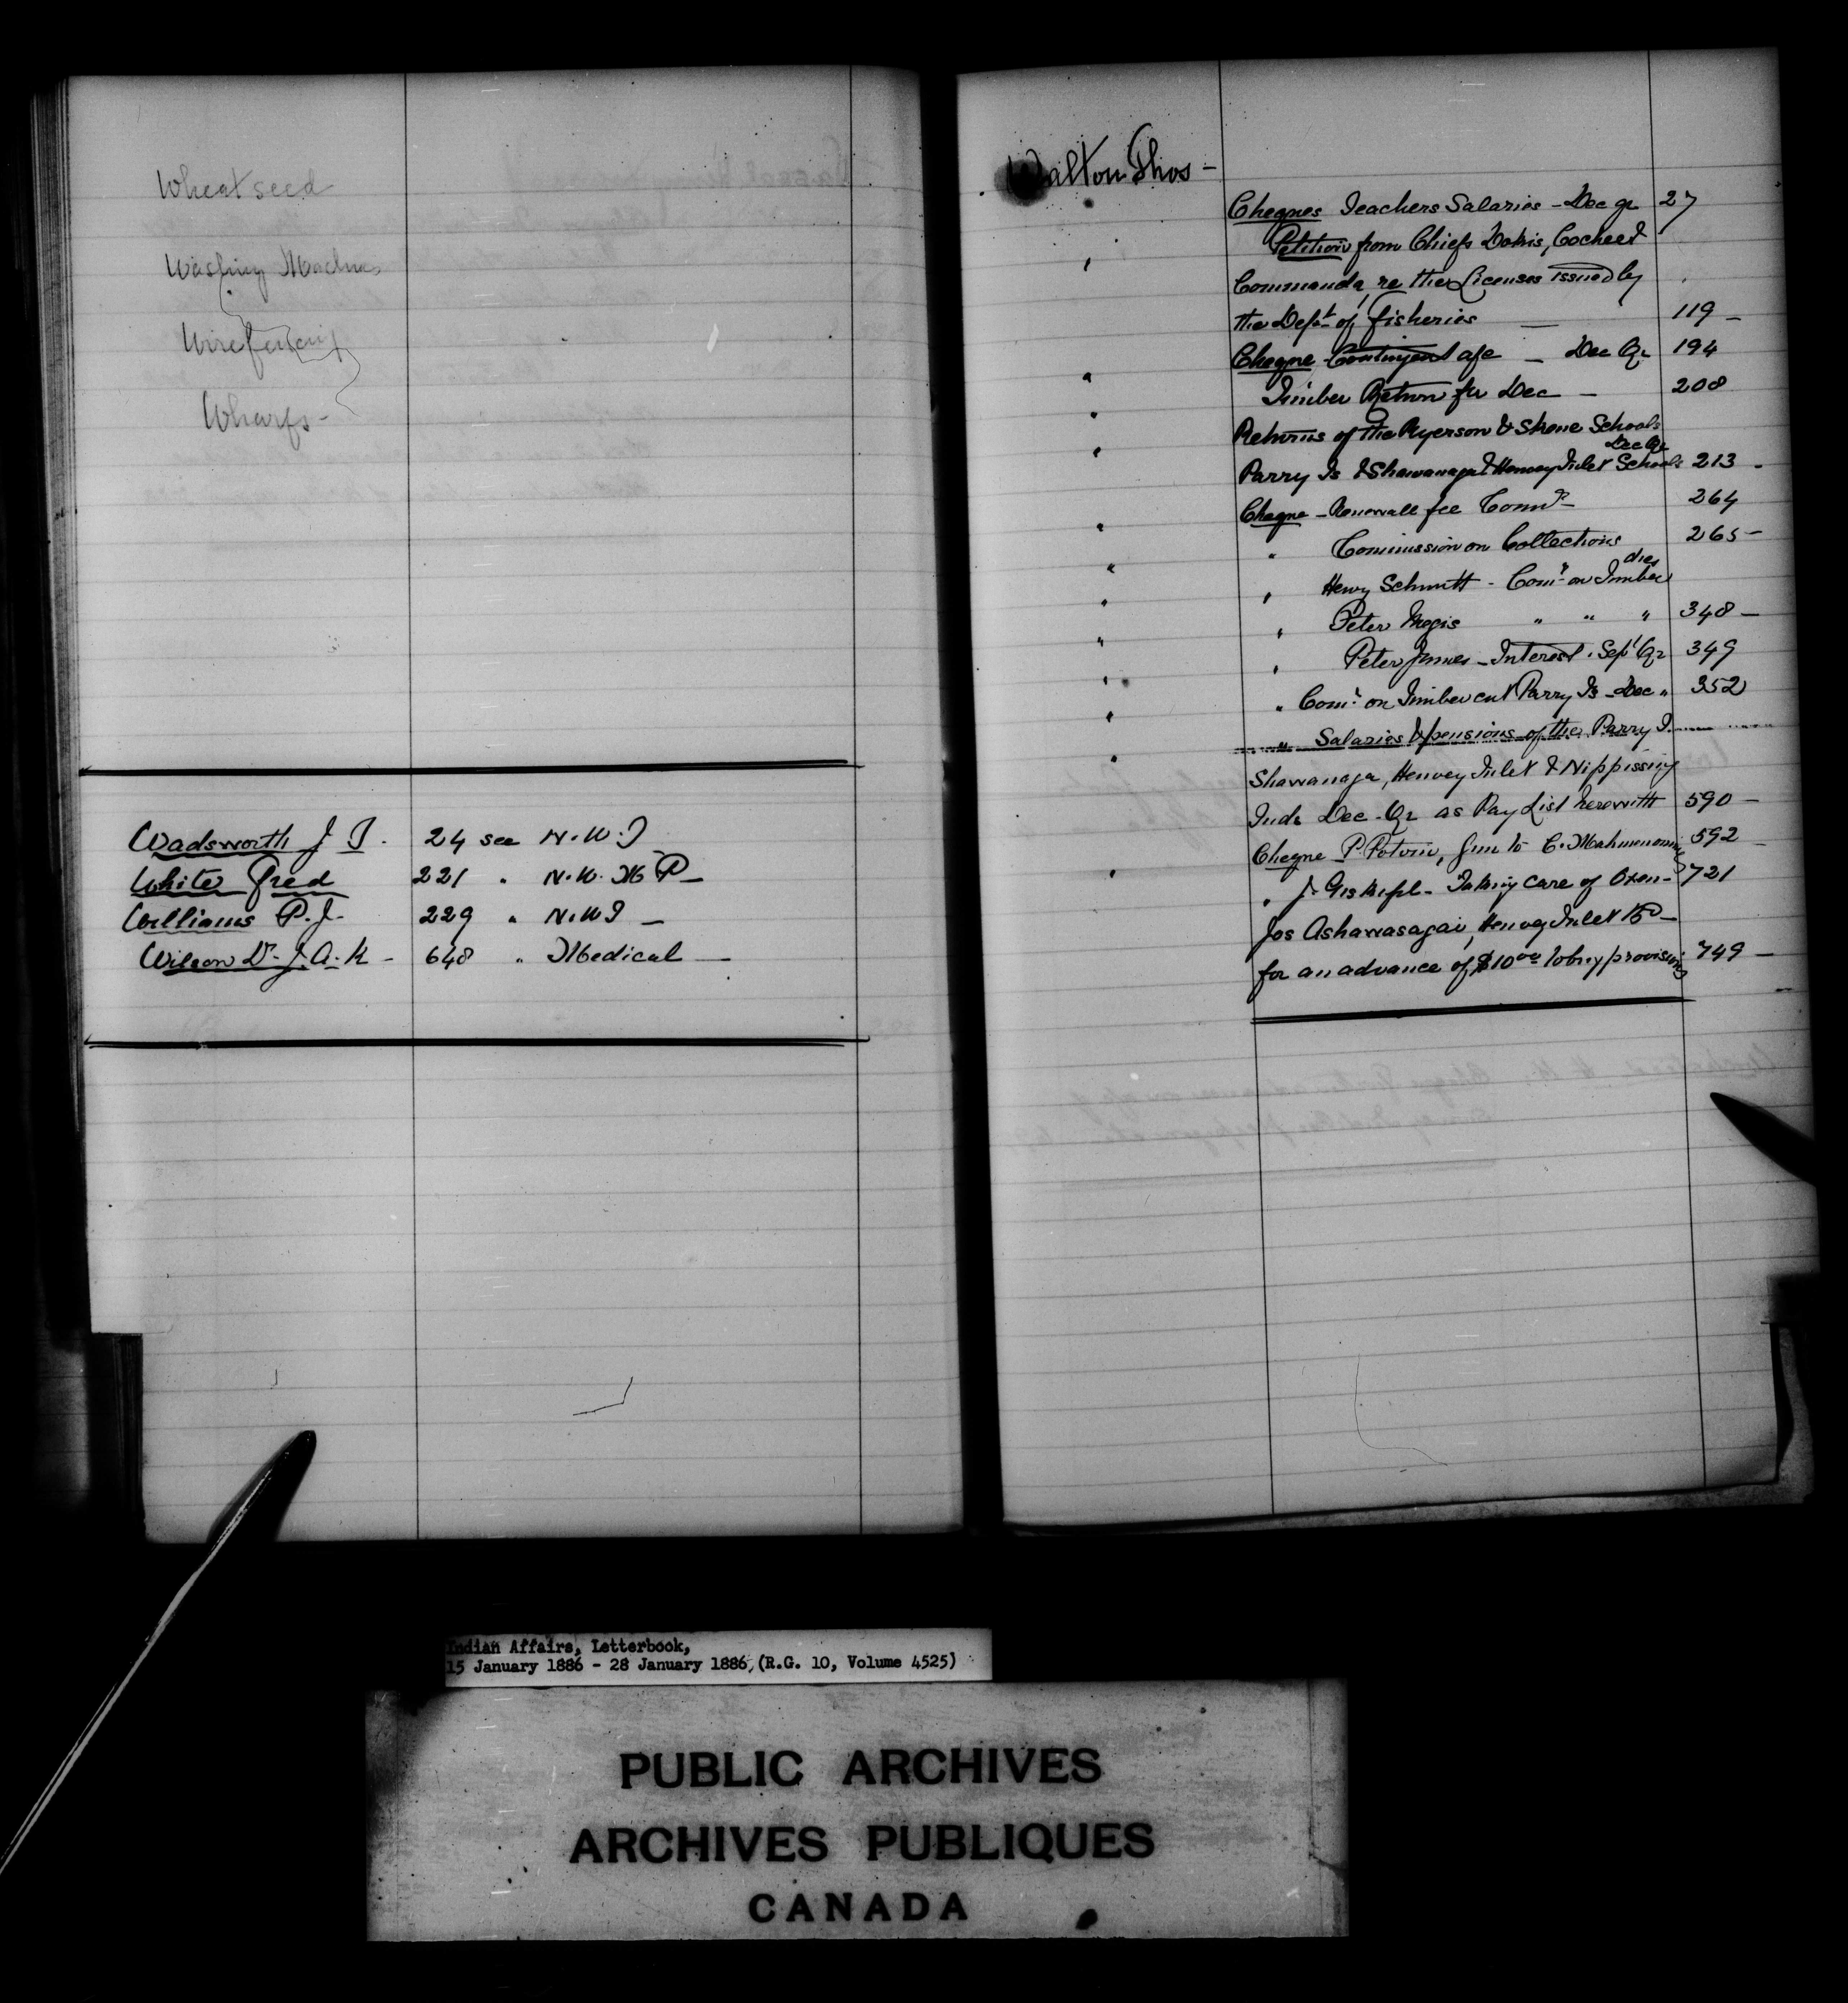 Wheat seed
Washing Machines
Wire fencing
Wharfs -
Wadsworth J T. 24 see N.W.T
White Fred 221 " N.W.M P -
Williams P.J. 229 " N.W.T -
Wilson Dr. J.A.K - 648 " Medical -
Walton Thos -
Cheques Teachers Salaries - Dec qr 27
" Petition from Chiefs Dokis, Cocheed
Commanda, re the Licenses issued by
the Dept of fisheries - 119 -
" Cheque Contingent a/c - Dec Qr 194
" Timber Return for Dec - 208
" Returns of the Ryerson & Skene Schools
Dec Qr
Parry Is & Shawanaga & Henvey Inlet Schools 213 -
" Cheque - Renewall fee Comn - 264
" " Commission on Collections 265 -
dues
" " Henry Schmitt - Comn on Timber
" " Peter Megis " " " 348 -
" " Peter James - Interest. Sept Qr 349
" " Comn on Timber cut Parry Is - Dec " 352
" " Salaries & pensions of the Parry I.
Shawanaga, Henvey Inlet & Nippissing
Inds Dec. Qr as Pay List herewith 590 -
" Cheque P. Potvin, 592 -
" J. Taking care of Oxen - 721
Jos Ashawasagai, Henvey Inlet Bd -
for an advance of $10 00 to buy provisions 749 -
Indian Affairs, Letterbook,
15 January 1886 - 28 January 1886, (R.G. 10, Volume 4525)
PUBLIC ARCHIVES
ARCHIVES PUBLIQUES
CANADA